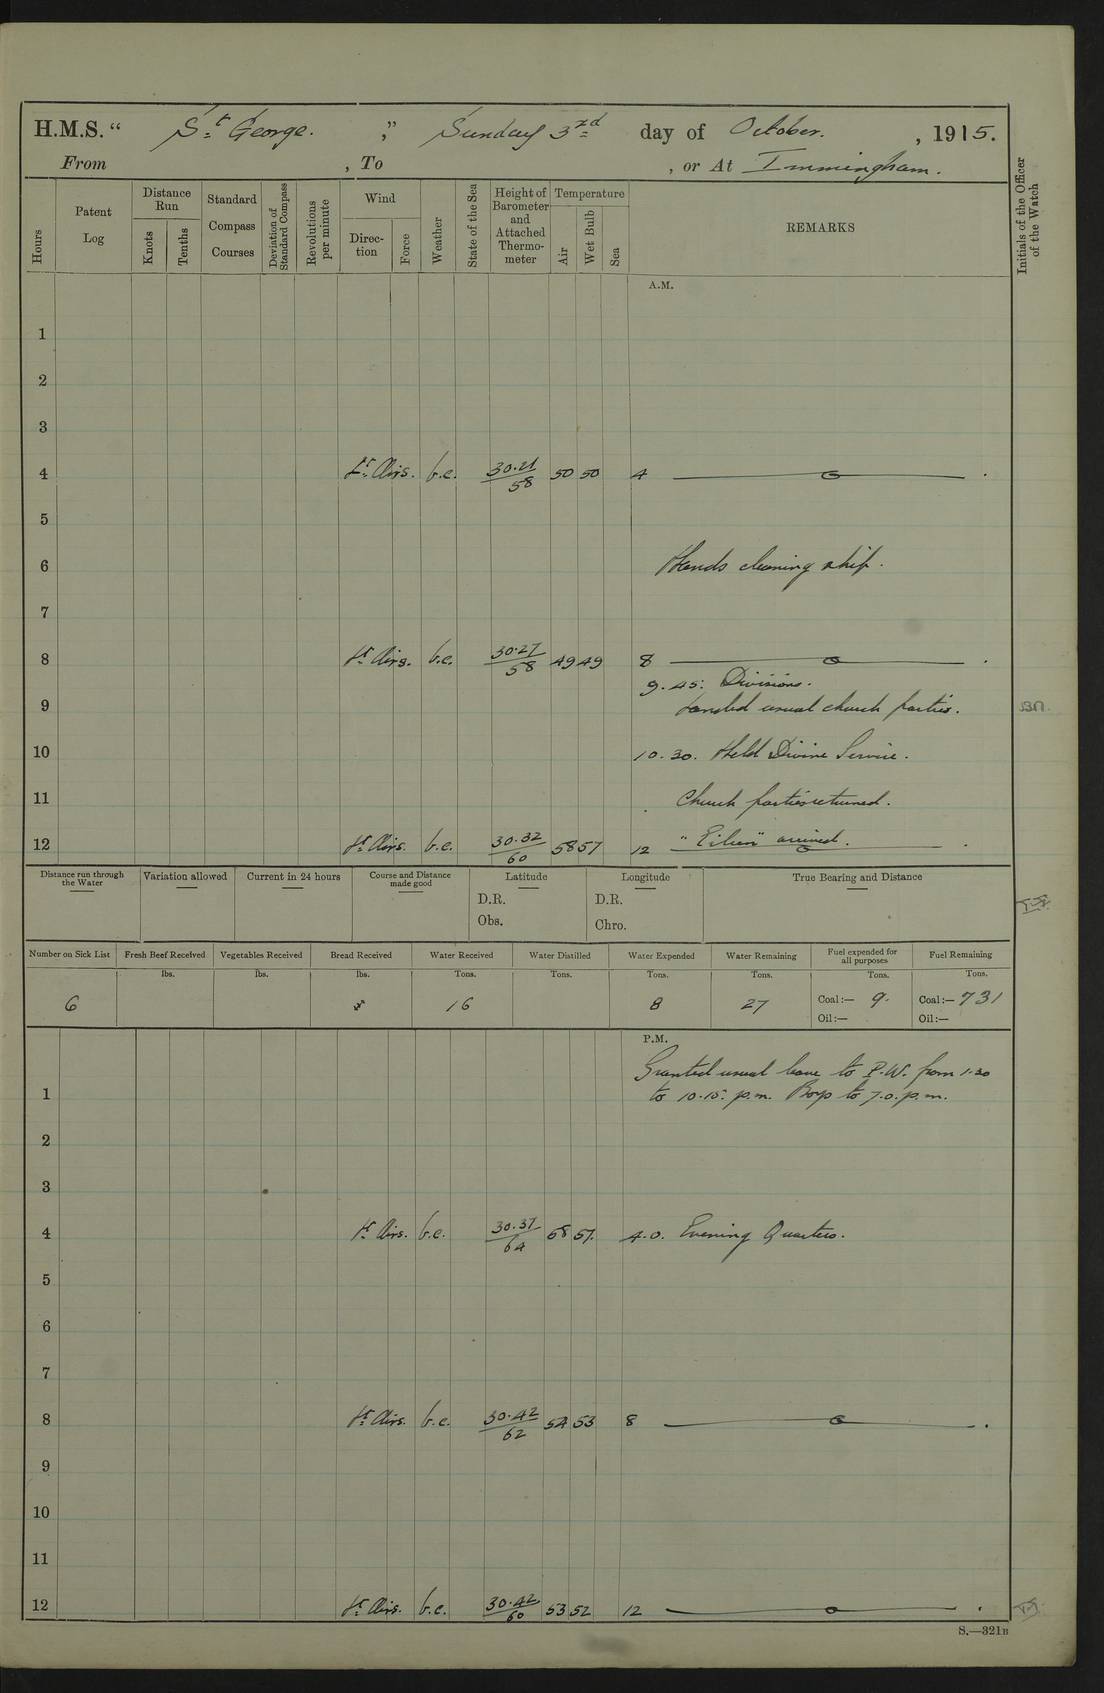 H.M.S. “ St. George. ,” Sunday 3rd day of October. , 1915.
From , To , or At Immingham.
Hours
Patent Log
Distance Run
Knots
Tenths
Standard Compass Courses
Deviation of Standard Compass
Revolutions per minute
Wind
Direction
Force
Weather
State of the Sea
Height of Barometer and Attached Thermometer
Temperature
Air
Wet Bulb
Sea
REMARKS
Initials of the Officer of the Watch
A.M.
1
2
3
4 Lt. Airs. b.c. 30.21/58 50 50 4
5
6 Hands cleaning ship.
7
8 Lt. Airs. b.c. 30.27/58 49 49 8
9.45: Divisions.
9 Landed usual church parties.
10 10.30. Held Divine Service.
11 Church parties returned.
12 Lt. Airs. b.c. 30.32/60 58 57 12 arrived.
Distance run through the Water
Variation allowed
Current in 24 hours
Course and Distance made good
Latitude
Longitude
True Bearing and Distance
D.R. D.R.
Obs. Chro.
Number on Sick List
Fresh Beef Received
Vegetables Received
Bread Received
Water Received
Water Distilled
Water Expended
Water Remaining
Fuel expended for all purposes
Fuel Remaining
lbs. lbs. lbs. Tons. Tons. Tons. Tons. Tons. Tons.
6 16 8 27 Coal:— 9. Coal:— 731
Oil:— Oil:—
P.M.
Granted usual leave to P.W. from 1.30
1 to 10.15: p.m. Boys to 7.0. p.m.
2
3
4 Lt. Airs. b.c. 30.37/64 58 57. 4.0. Evening Quarters.
5
6
7
8 Lt. Airs. b.c. 30.42/62 54 53 8
9
10
11
12 Lt. Airs. b.c. 30.42/60 53 52 12
S.—321B